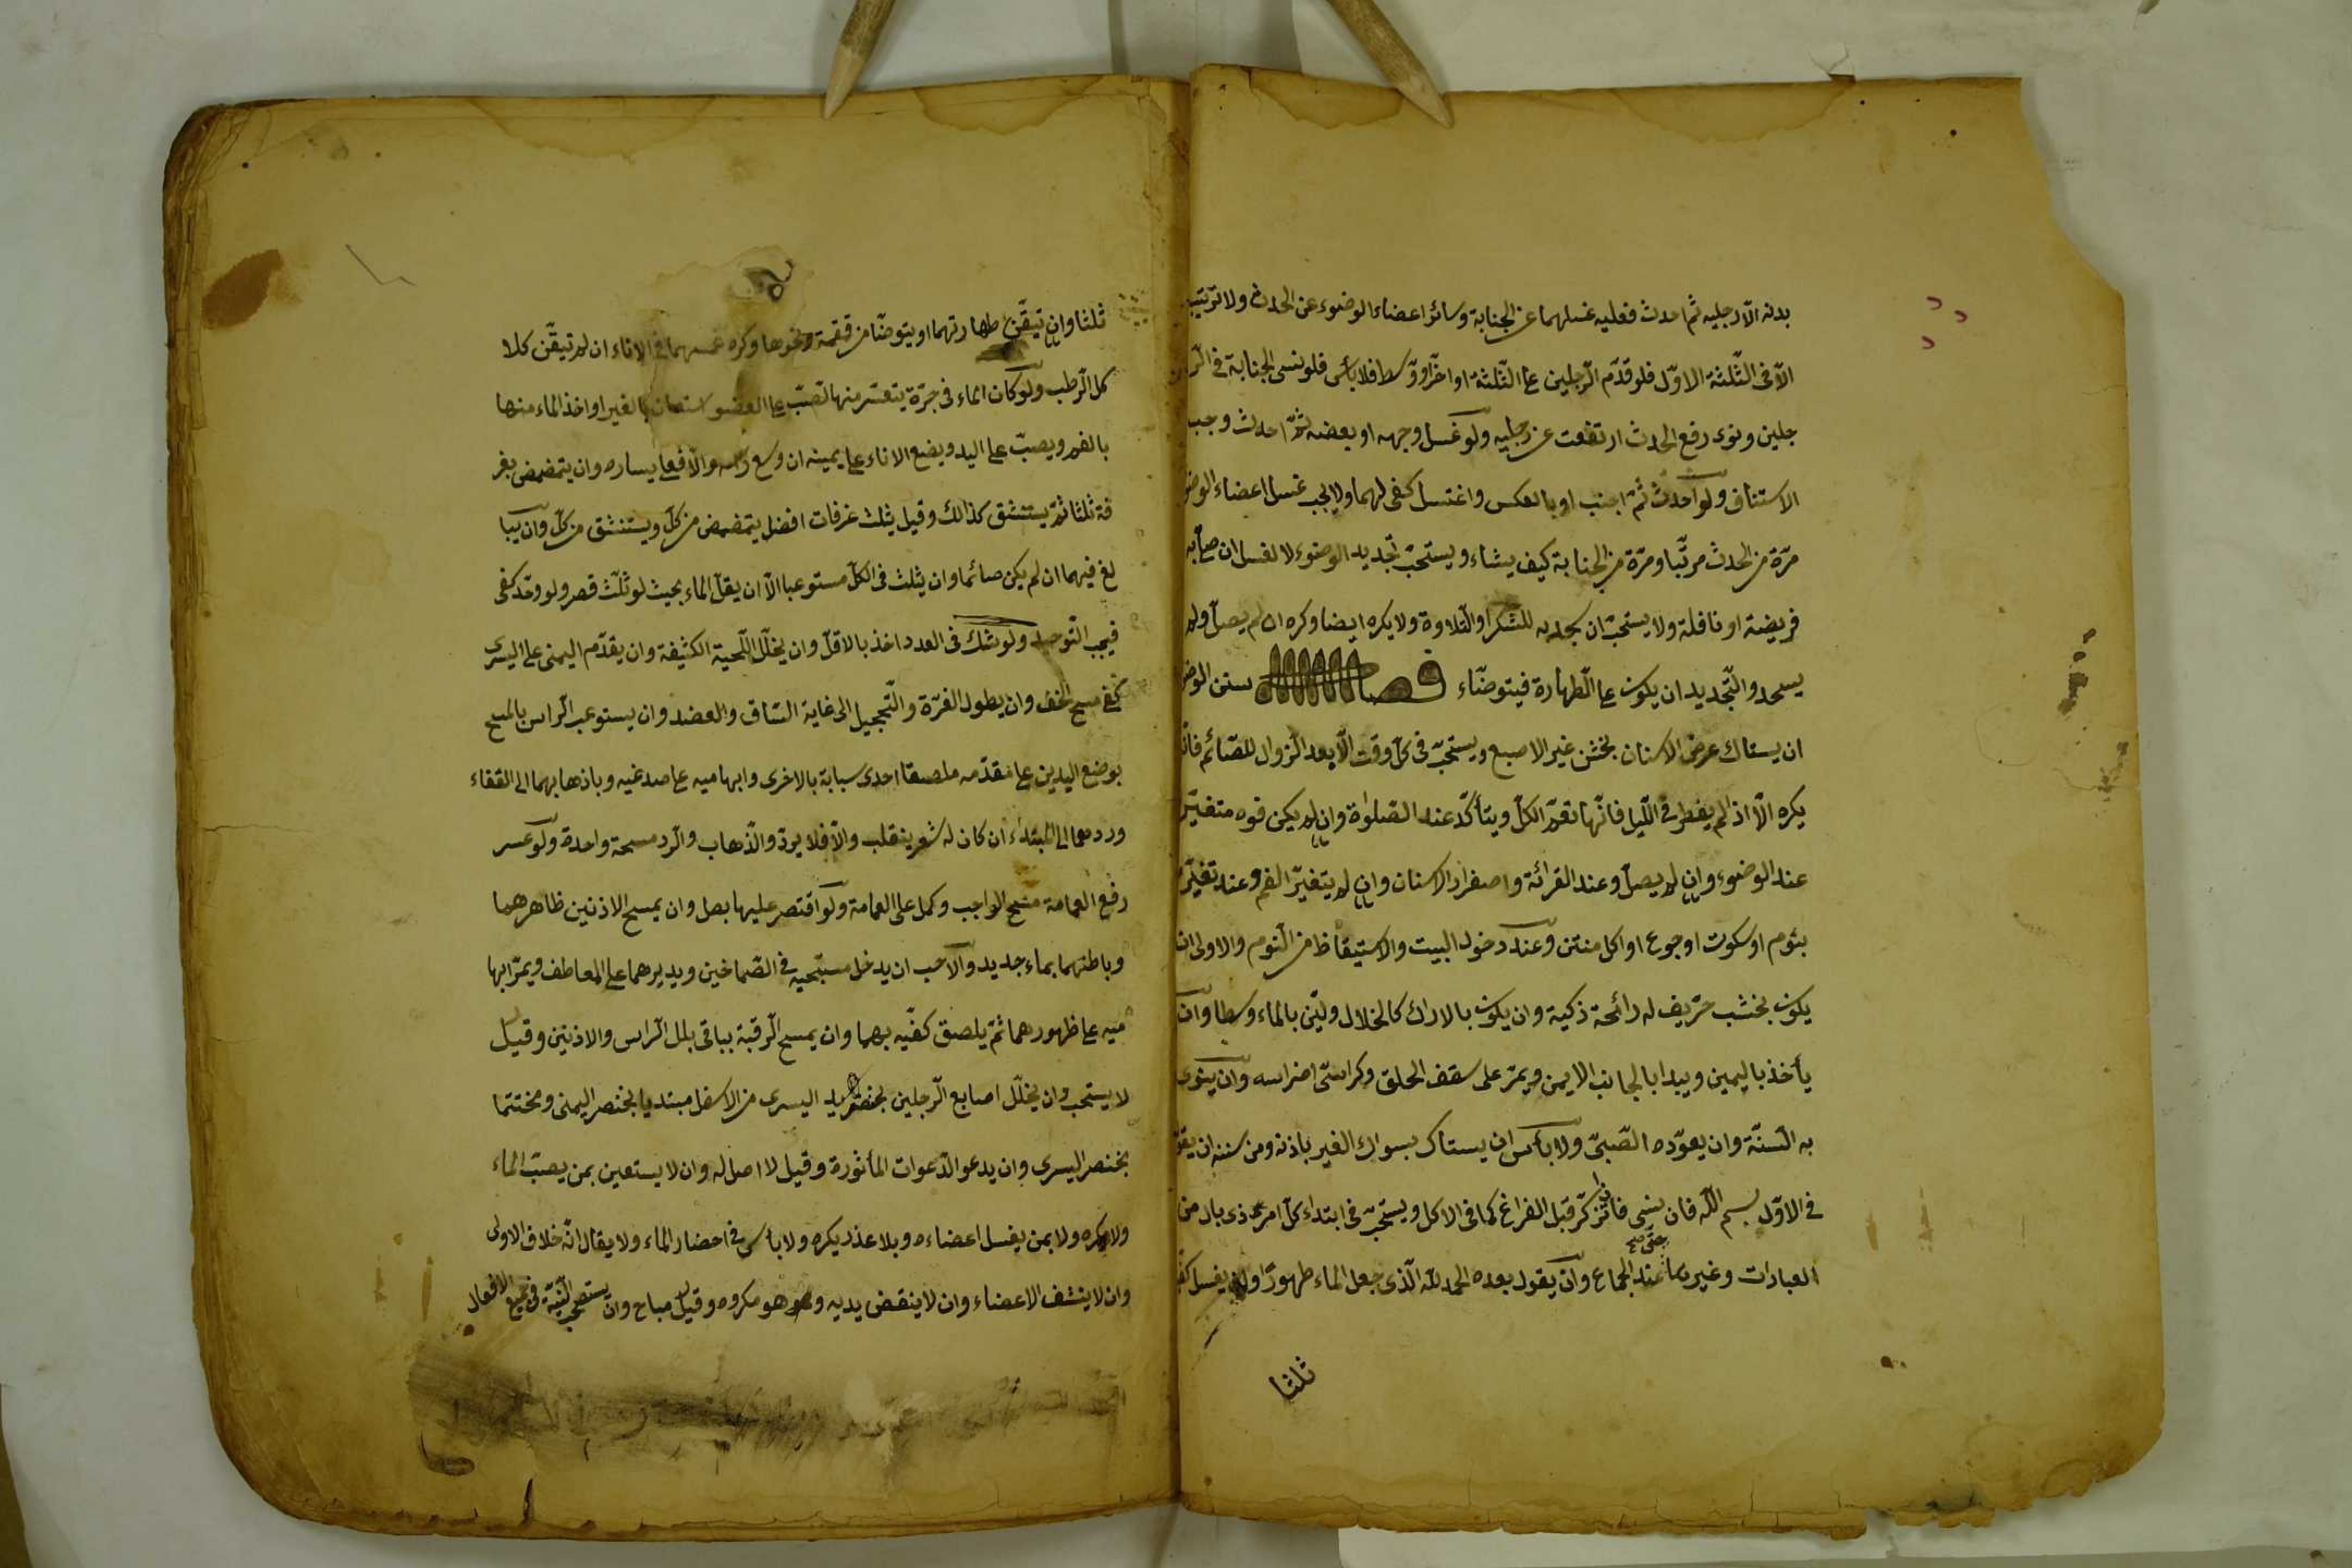 بدنه الّا رجليه ثمّ احدث فعليه غسلهما عن الجنابة وسائر اعضاء الوضوء عن الحدث ولا ترتيب
الّا فى الثّلثة الاوّل فلو قدّم الرّجلين على الثّلثة او اخّر او وّسط فلا بأس فلو نسى الجنابة فى الر
جلين ونوى رفع الحدث ارتفعت عن رجليه ولو غسل وجهه او بعضه ثمّ احدث وجب
الاستناف ولو احدث ثمّ اجنب او بالعكس واغتسل كفى لهما ولا يجب غسل اعضاء الوضو
مرّة من الحدث مرتّبا ومرّة من الجنابة كيف يشاء ويستحبّ تجديد الوضوء لا لغسل ان صلّى به
فريضة او نافلة ولا يستحبّ ان سجد به للشّكر او التّلاوة ولا يكره ايضا وكره ان لم يصلّ ولم
يسجد والتّجديد ان يكون على الطّهارة فيتوضّاء فصل سنن الوضو
ان يستاك عرض الاسنان بخشن غير الاصبع ويستحبّ فى كلّ وقت الّا بعد الزوال للصّائم فانّه
يكره الّا اذ لم يفطر فى اللّيل فانّها تقوّم الكلّ ويتأكّد عند الصّلوٰة وان لم يكن فوه متغيّرا
عند الوضوء وان لم يصلّ وعند القرائة واصفرار الاسنان وان لم يتغيّر الفم وعند تغيّره
بثوم او سكوت او جوع او اكل منتن وعند دخول البيت والاستيقاظ من النّوم والاولى ان
يكون بخشب حرّيف له رائحة ذكية وان يكون بالاراك كالخلال وليّن بالماء وسطا وان
يأخذ باليمين ويبدا بالجانب الايمن ويمرّ على سقف الحلق وكراسىّ اضراسه وان ينوى
به السّنّة وان يعوّده الصّبىّ ولا بأس ان يستاك بسواك الغير باذنه ومن سننه ان يقو
فى الاوّل بسم اللّه فان نسى فاذا تذكّر قبل الفراغ كما فى الاكل ويستحبّ فى ابتداء كلّ امر ذى بال من
العبادات وغيرها حتى عند الجماع وان يقول بعده الحمد للّه الّذى جعل الماء طهورًا وان يغسل كفّيه
ثلثا
ثلثا وان تيقّن طهارتهما او يتوضّا من قمقمة ونحوها وكره غمسهما فى الاناء ان لم تيقّن كلا
كل الرّطب ولو كان الماء فى جرّة يتعسّر منها الصّبّ على العضو استعان بالغير او اخذ الماء منها
بالفم ويصبّ على اليد ويضع الاناء على يمينه ان وسع رأسه والّا فعلى يساره وان يتمضمض بغر
فة ثلثا ثمّ يستنشق كذالك وقيل بثلث غرفات افضل يتمضمض من كلّ ويستنشق من كلّ وان يبا
لغ فيهما ان لم يكن صائما وان يثلث فى الكلّ مستوعبا الّا ان يقلّ الماء بحيث لو ثلّث قصر ولو وحّد كفى
فيجب التّوحيد ولو شكّ فى العدد اخذ بالاقلّ وان يخلّل اللّحية الكثيفة وان يقدّم اليمنى على اليسرى
كفى مسح الخفّ وان يطول الغرّة والتّحجيل الى غاية السّاق والعضد وان يستوعب الرّاس بالمسح
بوضع اليدين على مقدّمه ملصقا احدى سبابة بالاخرى وابهاميه على صدغيه وباذهابهما الى القفاء
وردهما الى المبتداء ان كان له شعر ينقلب والّا فلا يردّ والذّهاب والرّد مسحة واحدة ولو عسر
رفع العمامة مسح الواجب وكمل على العمامة ولو اقتصر عليها بطل وان يمسح الاذنين ظاهرهما
وباطنهما بماء جديد والاحب ان يدخل مسبّحيه فى الصّماخين ويديرهما على المعاطف ويمرّ ابها
ميه على ظهورهما ثمّ يلصق كفّيه بهما وان يمسح الرّقبة بباقى بلل الرّاس والاذنين وقيل
لا يستحب وان يخلّل اصابع الرّجلين بخنصر يد اليسرى من الاسفل مبتديا بخنصر اليمنى ومختتما
بخنصر اليسرى وان يدعو الدّعوات المأثورة وقيل لا اصل له وان لا يستعين بمن يصبّ الماء
ولا يكره ولا بمن يغسل اعضاءه وبلا عذر يكره ولا بأس فى احضار الماء ولا يقال انّه خلاف الاولى
وان لا ينشف الاعضاء وان لا ينفض يديه وهو مكروه وقيل مباح وان يستصحب النّيّة فى جميع الافعال